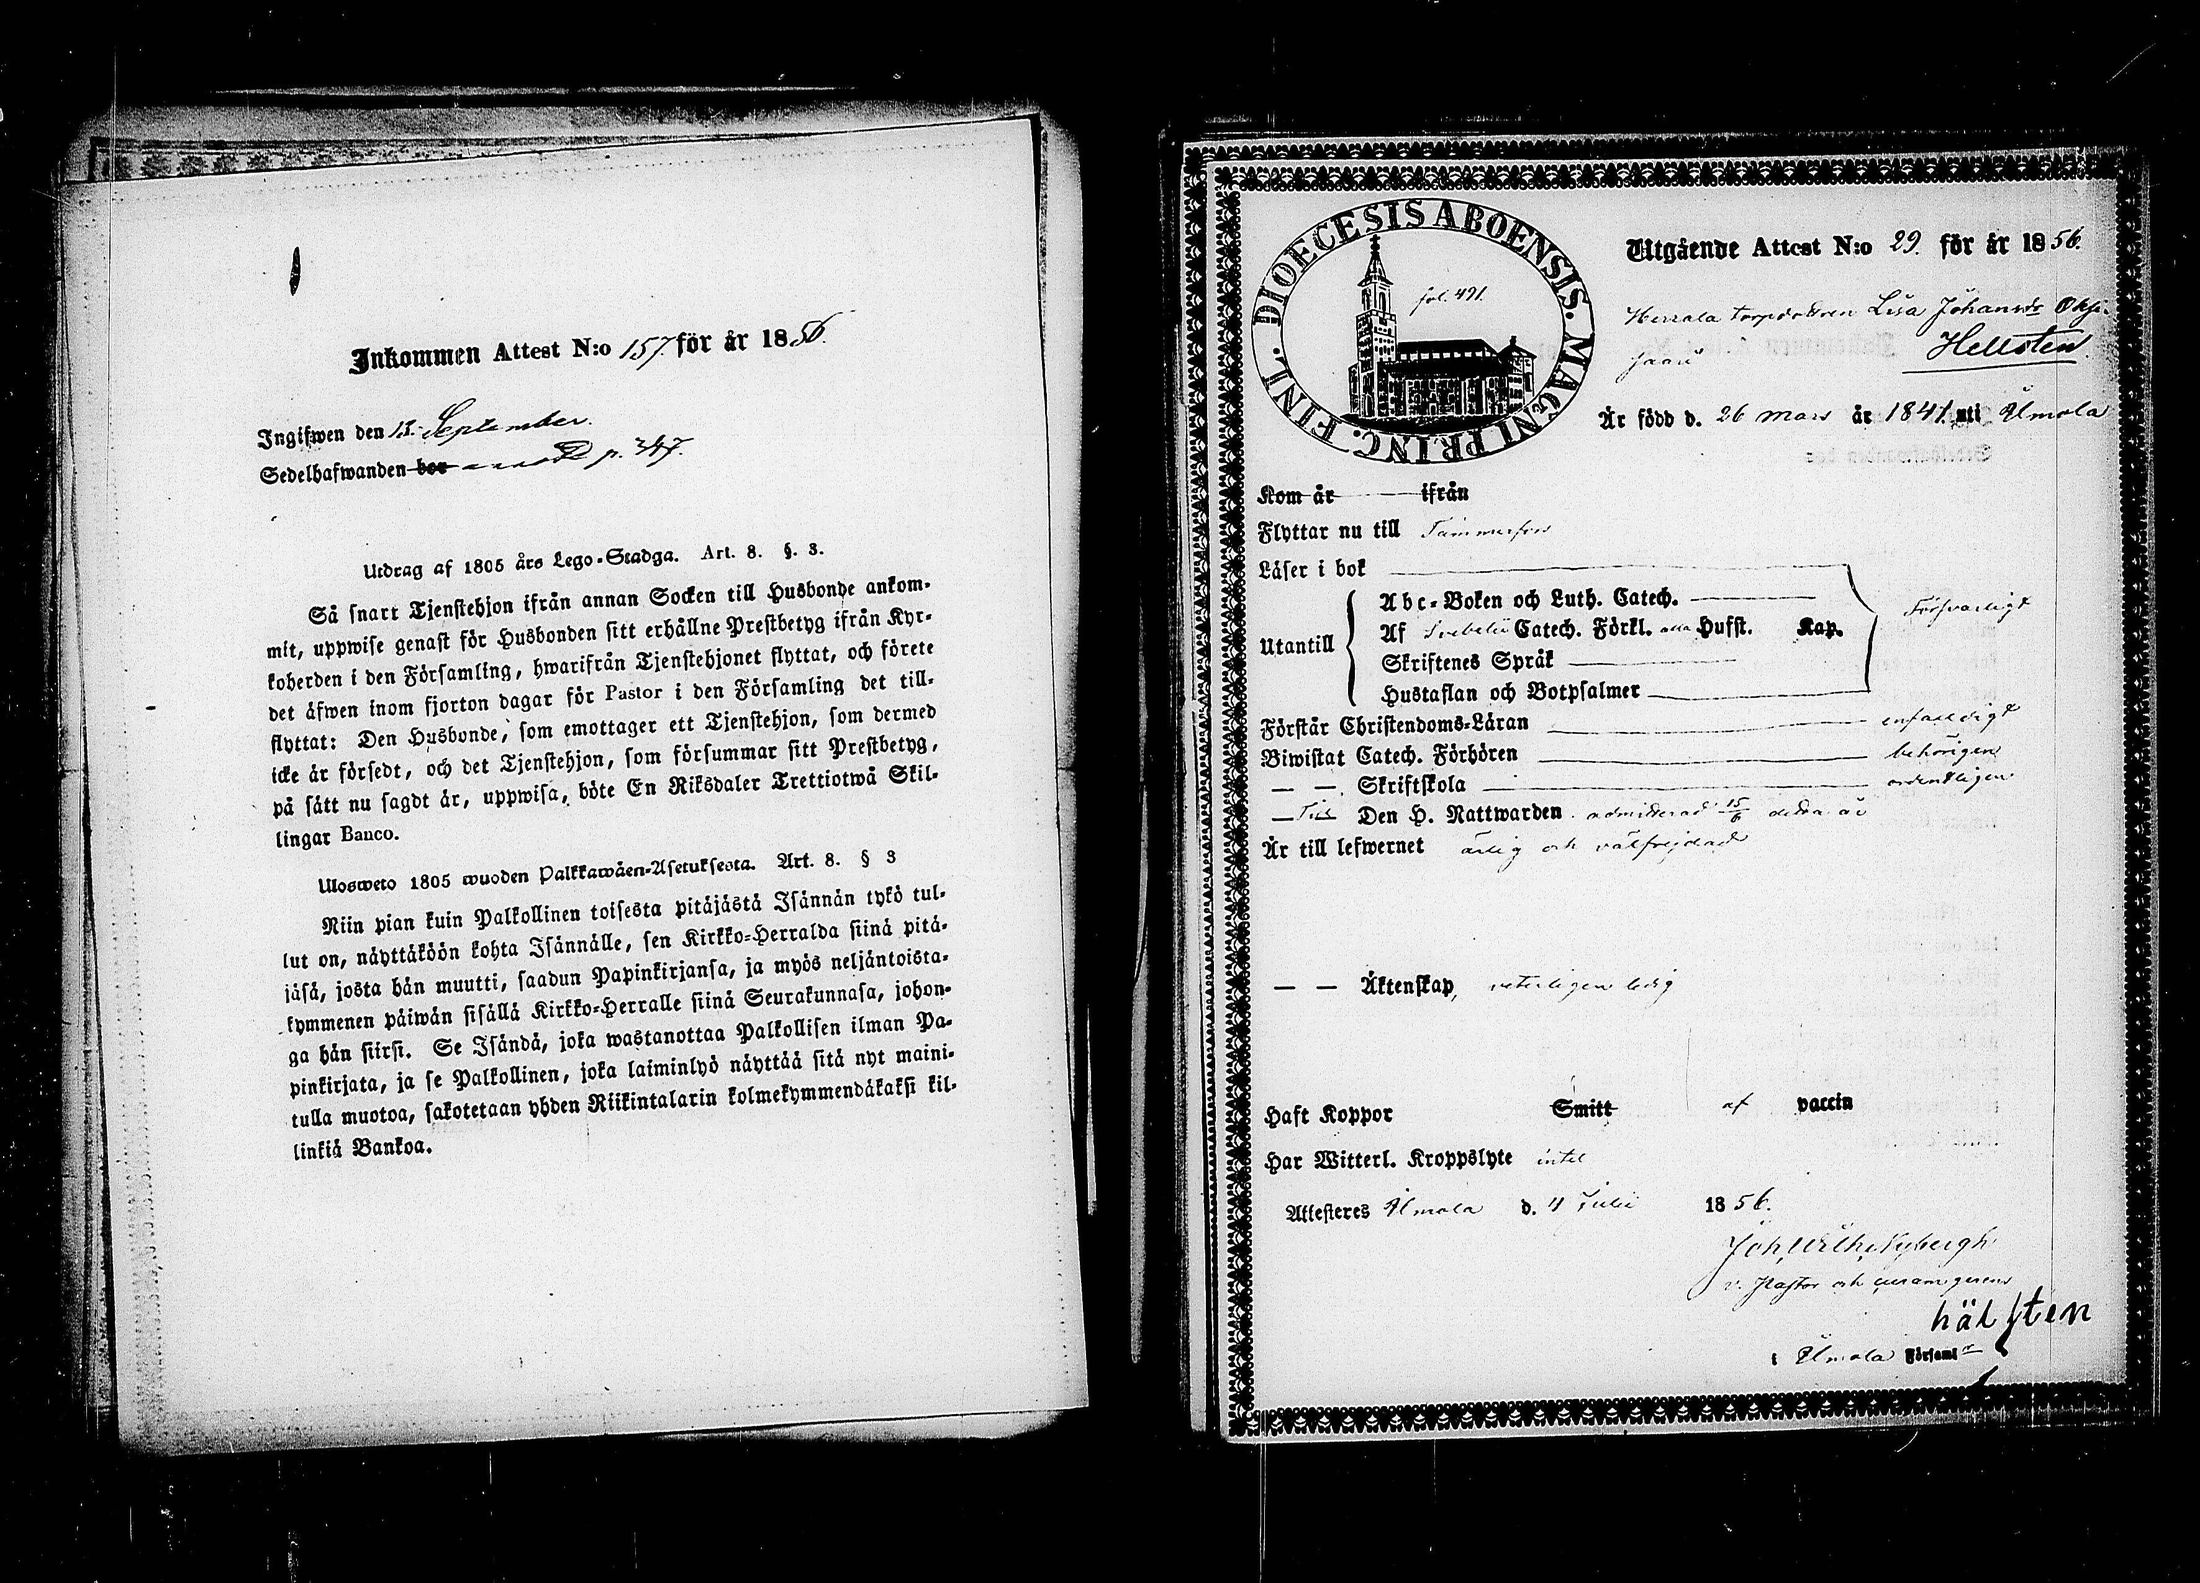 Inkommen Attest N:o 157. för år 1856.
Ingifwen den 13. September.
Sedelhafwanden bor p. 347.
Utdrag af 1805 års Lego-Stadga. Art. 8. §. 3.
Så snart Tjenstehjon ifrån annan Socken till Husbonde ankom-
mit, uppwise genast för Husbonden sitt erhållne Prestbetyg ifrån Kyr-
koherden i den Församling, hwarifrån Tjenstehjonet flyttat, och förete
det äfwen inom fjorton dagar för Pastor i den Församling det till-
flyttat: Den Husbonde, som emottager ett Tjenstehjon, som dermed
icke är försedt, och det Tjenstehjon, som försummar sitt Prestbetyg,
på sätt nu sagdt är, uppwisa, böte En Riksdaler Trettiotwå Skil-
lingar Banco.
Ulosweto 1805 wuoden Palkkawäen-Asetuksesta. Art. 8. § 3
Niin pian kuin Palkollinen toisesta pitäjästä Isännän tykö tul-
lut on, näyttäköön kohta Isännälle, sen Kirkko-Herralda siinä pitä-
jäsä, josta hän muutti, saadun Papinkirjansa, ja myös neljäntoista-
kymmenen päiwän sisällä Kirkko-Herralle siinä Seurakunnasa, johon-
ga hän siirsi. Se Isändä, joka wastanottaa Palkollisen ilman Pa-
pinkirjata, ja se Palkollinen, joka laiminlyö näyttää sitä nyt maini-
tulla muotoa, sakotetaan yhden Riikintalarin kolmekymmendäkaksi kil-
linkiä Bankoa.
DIOECESIS ABOENSIS. MAGNI PRINC. FINL.
fol. 491.
Utgående Attest N:o 29. för år 1856.
Herrala torpdottren Lisa Johansdr
Hellsten
Är född d. 26 mars år 1841. uti Ilmola
Kom år ifrån
Flyttar nu till Tammerfors
Läser i bok
Abc-Boken och Luth. Catech.
Försvarligt
Utantill
Af Svebelii Catech. Förkl. alla Husst. Kap.
Skriftenes Språk
Hustaflan och Botpsalmer
Förstår Christendoms-Läran enfaldigt
Biwistat Catech. Förhören behörigen
— — Skriftskola ordentligen
— Till Den H. Nattwarden admitterad 15/6 detta år
Är till lefwernet ärlig och välfrejdad
— — Äktenskap, veterligen ledig
Haft Koppor Smitt af vaccin
Har Witterl. Kroppslyte intet
Attesteres Ilmola d. 4 Julii 1856.
Joh. Wilh. Nybergh
v. Pastor och curam gerens
hälsten
i Ilmola Församl